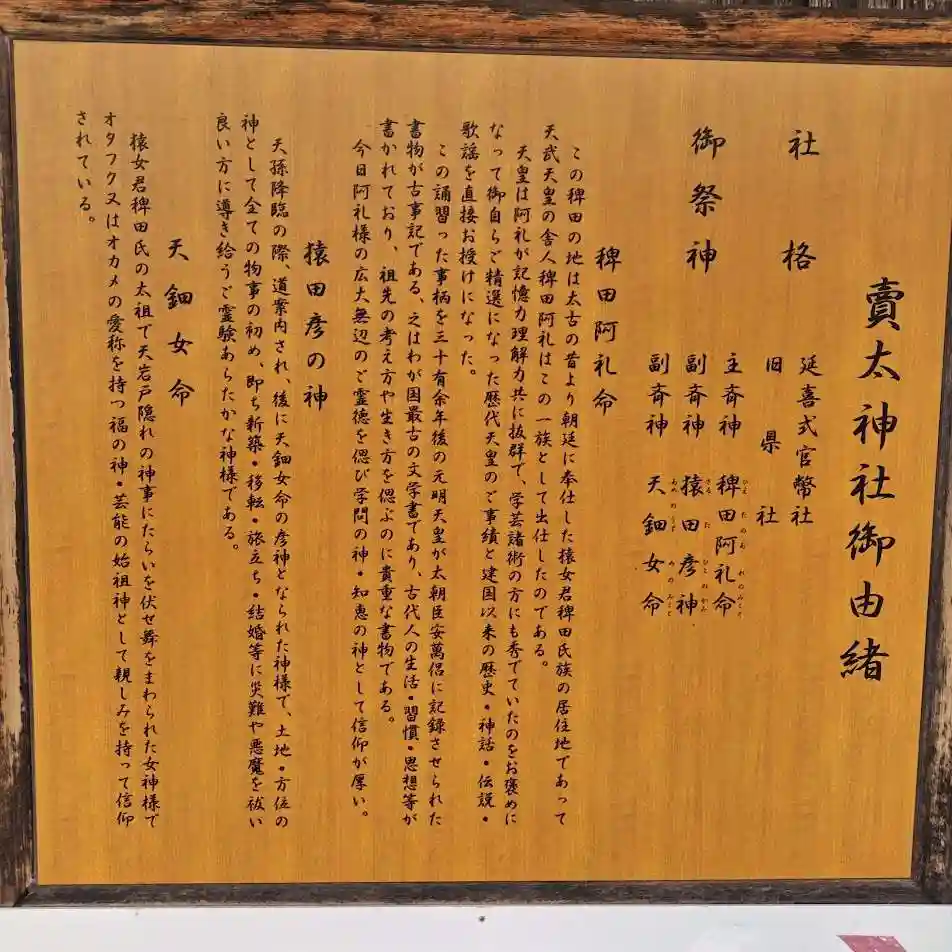 賣太神社御由緒
社格 延喜式官幣社
旧県社
御祭神 主斎神 稗田阿礼命
副斎神 猿田彦神
副斎神 天鈿女命
稗田阿礼命
この稗田の地は太古の昔より朝廷に奉仕した猿女君稗田氏族の居住地であって
天武天皇の舎人稗田阿礼はこの一族として出仕したのである。
天皇は阿礼が記憶力理解力共に抜群で、学芸諸術の方にも秀でていたのをお褒めに
なって御自らご精選になった歴代天皇のご事績と建国以来の歴史・神話・伝説・
歌謡を直接お授けになった。
この誦習った事柄を三十有余年後の元明天皇が太朝臣安萬侶に記録させられた
書物が古事記である、之はわが国最古の文学書であり、古代人の生活・習慣・思想等が
書かれており、祖先の考え方や生き方を偲ぶのに貴重な書物である。
今日阿礼様の広大無辺のご霊徳を偲び学問の神・知恵の神として信仰が厚い。
猿田彦の神
天孫降臨の際、道案内され、後に天鈿女命の彦神となられた神様で、土地・方位の
神として全ての物事の初め、即ち新築・移転・旅立ち・結婚等に災難や悪魔を祓い
良い方に導き給うご霊験あらたかな神様である。
天鈿女命
猿女君稗田氏の太祖で天岩戸隠れの神事にたらいを伏せ舞をまわられた女神様で
オタフク又はオカメの愛称を持つ福の神・芸能の始祖神として親しみを持って信仰
されている。